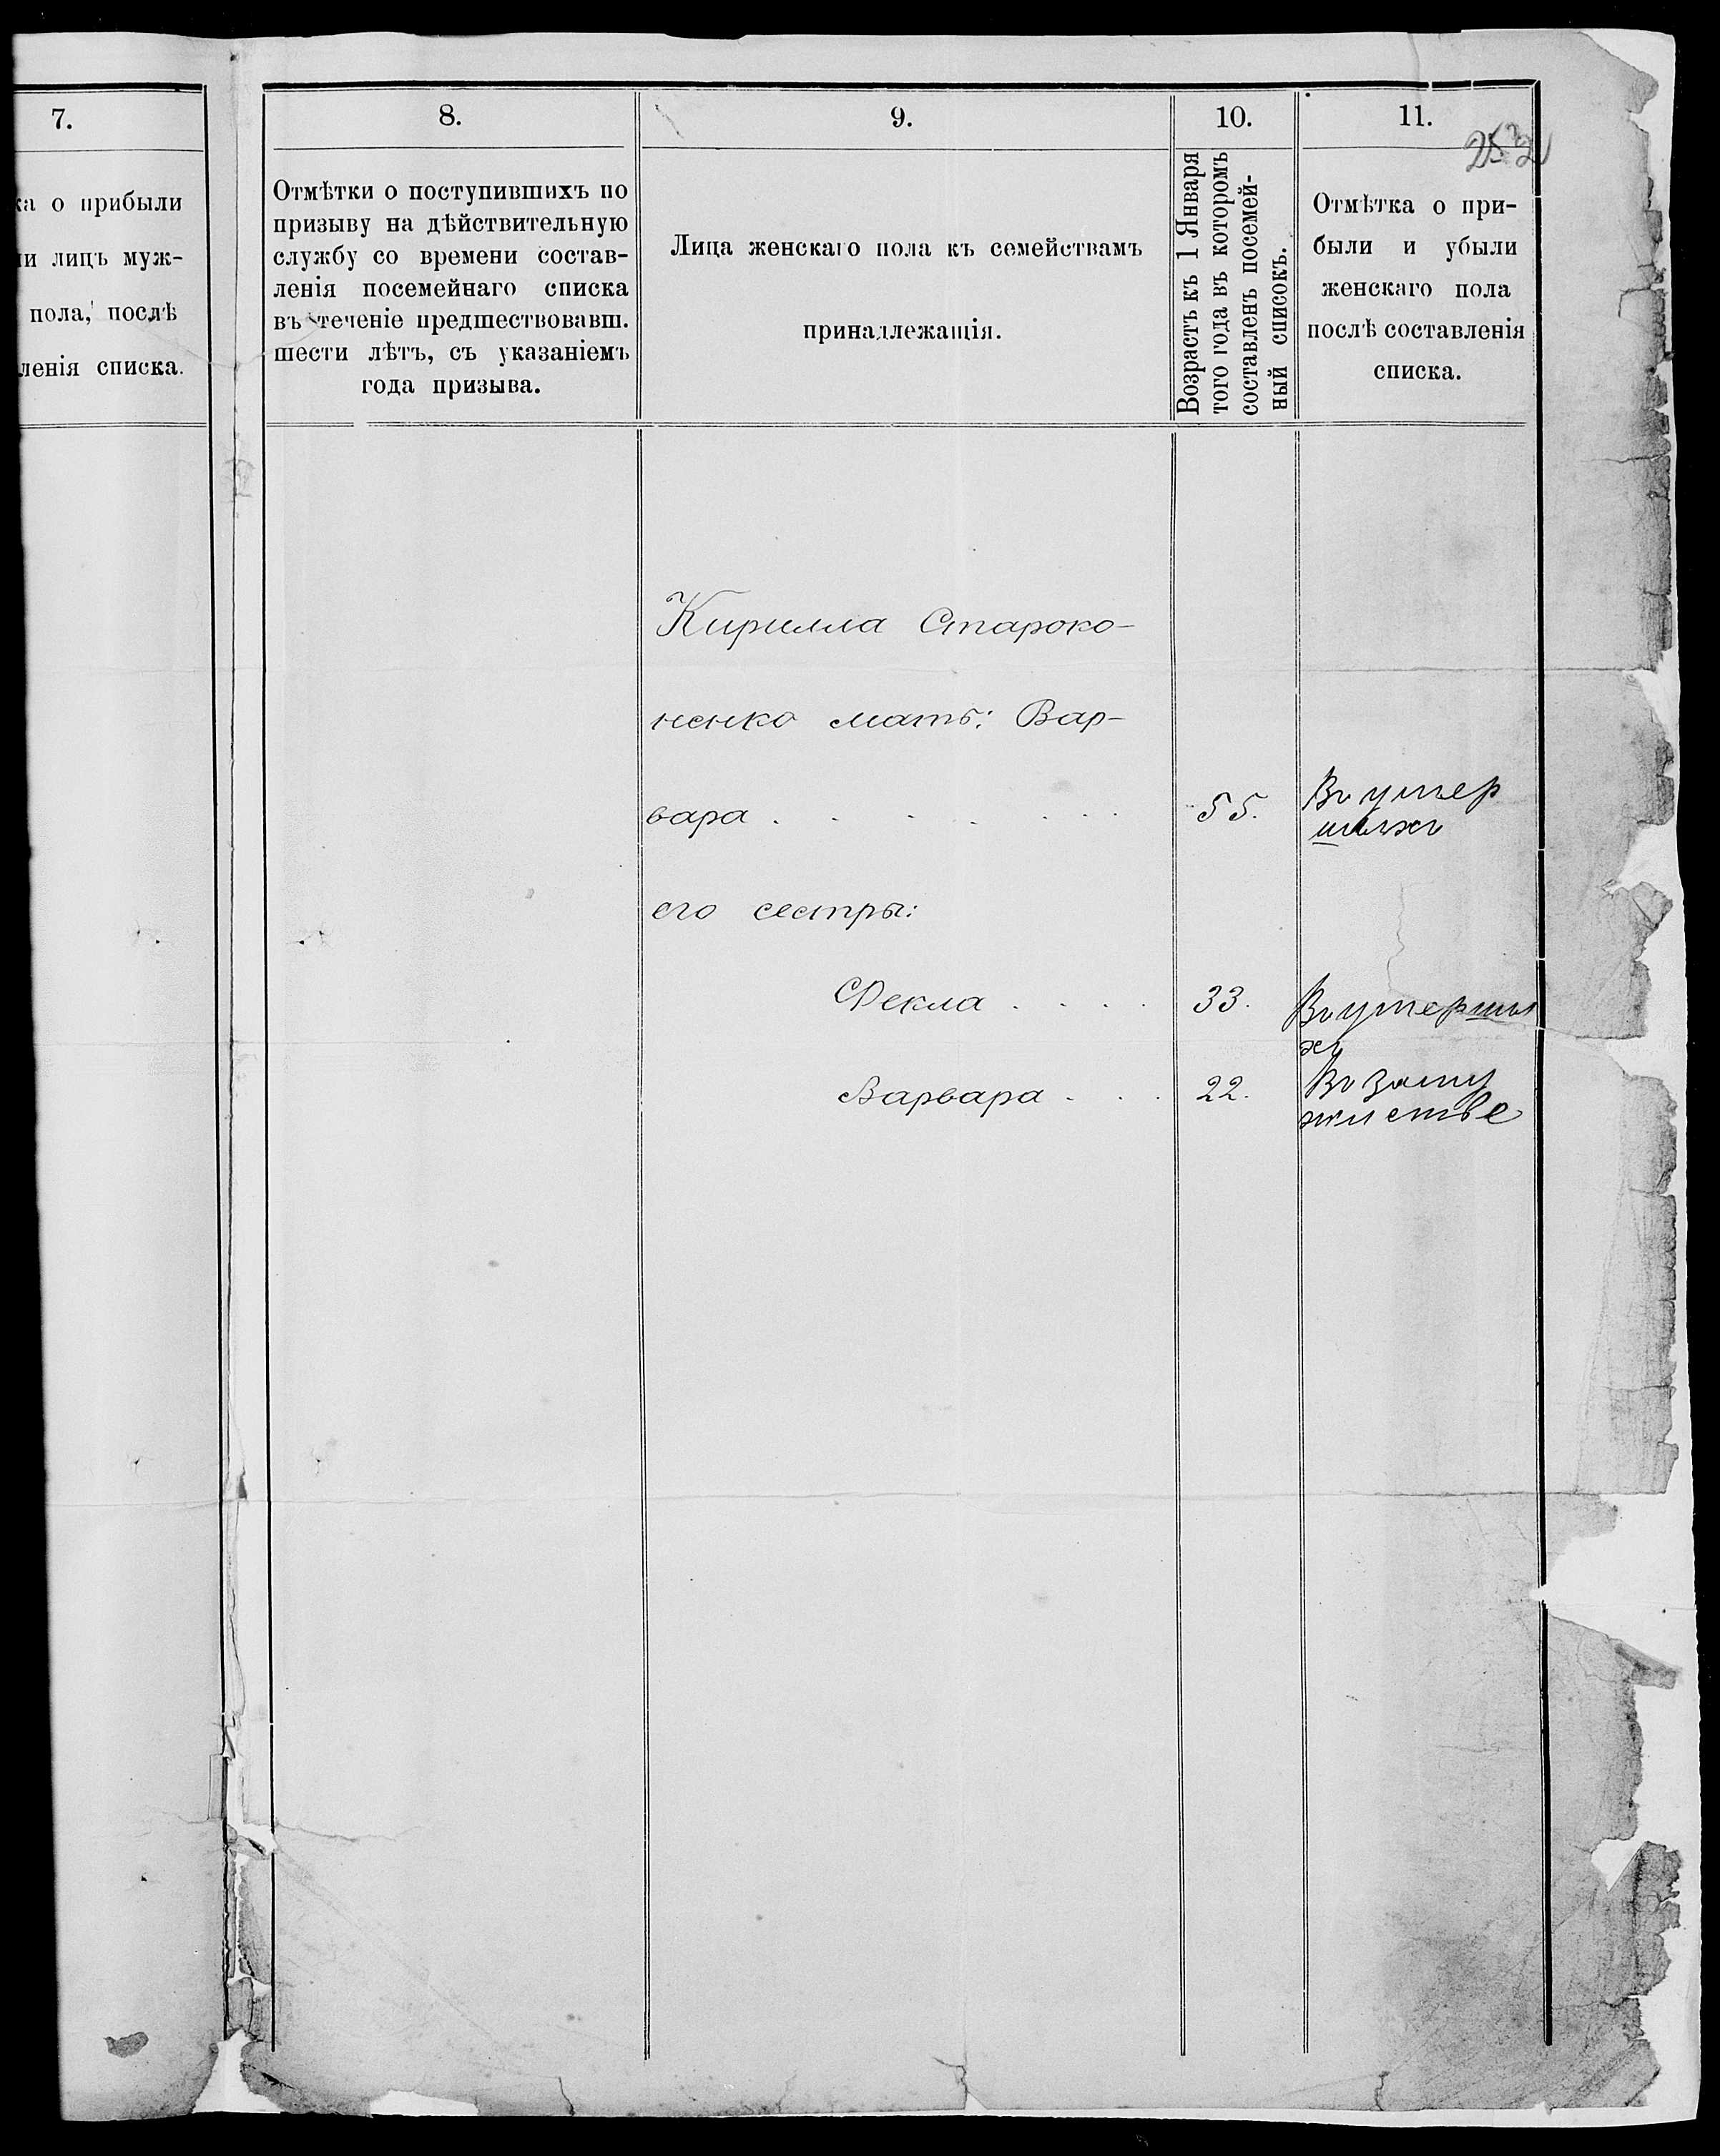 7.
ка о прибыли
ли лицъ муж-
пола, послѣ
ленія списка.
8.
Отмѣтки о поступившихъ по
призыву на дѣйствительную
службу со времени состав-
ленія посемейнаго списка
въ теченіе предшествовавш.
шести лѣтъ, съ указаніемъ
года призыва.
9.
Лица женскаго пола къ семействамъ
принадлежащія.
10.
Возрастъ къ 1 Января
того года въ которомъ
составленъ посемей-
ный списокъ.
11.
Отмѣтка о при-
были и убыли
женскаго пола
послѣ составленія
списка.
Кирилла Староко-
ненко мать: Вар-
вара . . . . . . . 55. Въ умер
шихъ
его сестры:
Фекла . . . . 33. Въ умерши
хъ
Варвара . . . 22. Въ заму
жистве